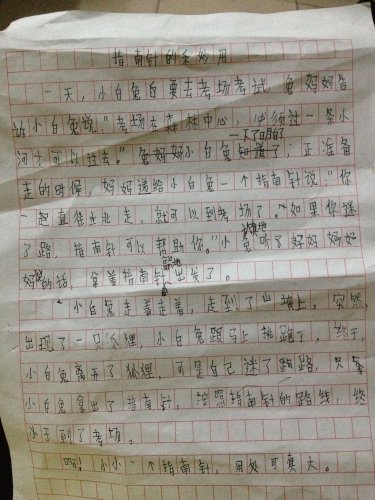 指南针的妙用
一天,小白兔自要去考场考试,兔妈妈告
诉小白兔说:“考场在森林中心,必须过一条小
河才可以过去。”兔妈妈小白兔知道了,正准备
走的时候,妈妈递给小白兔一个指南针说:“你
一起直往北走,就可以到考场了。”如果你迷
了路,指南针可以帮助你。”小兔听了妈妈
妈的话,拿着指南针出发了。
小白兔走着走着,走到了山坡上,突然,
出现了一只狐狸,小白兔马上跳跑了,终于,
小白兔离开了狐狸,可是自己迷了路,只
小白兔拿出了指南针,按照指南针的路线,终
于到了考场。
啊!小小一个指南针,用处可真大。